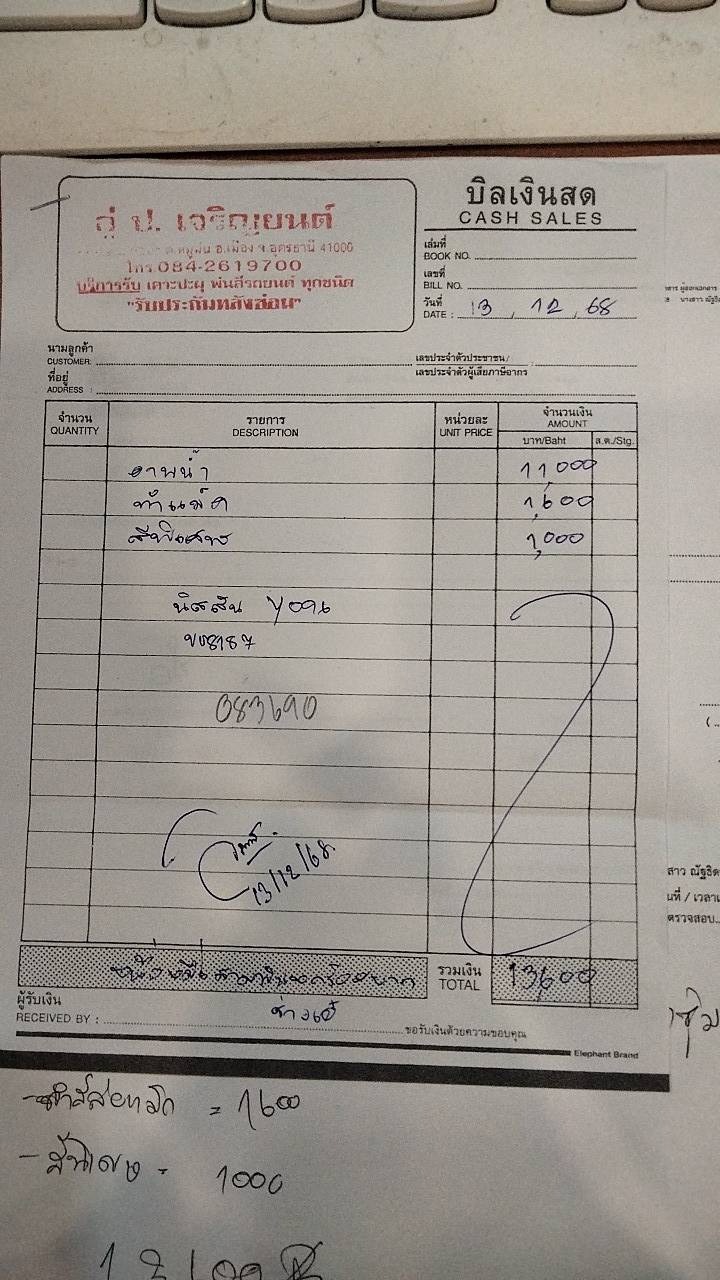 บิลเงินสด
CASH SALES
อู่ ป. เจริญยนต์
ต.หมูม่น อ.เมือง จ.อุดรธานี 41000
โทร.084-2619700
บริการรับ เคาะปะผุ พ่นสีรถยนต์ ทุกชนิด
"รับประกันหลังซ่อม"
เล่มที่
BOOK NO.
เลขที่
BILL NO.
วันที่
DATE : 13 , 12 , 68
นามลูกค้า
CUSTOMER:
เลขประจำตัวประชาชน/
เลขประจำตัวผู้เสียภาษีอากร
ที่อยู่
ADDRESS :
จำนวน
QUANTITY
รายการ
DESCRIPTION
หน่วยละ
UNIT PRICE
จำนวนเงิน
AMOUNT
บาท/Baht ส.ต./Stg.
11,000
1,600
1,000
นิสสัน
083690
13/12/68
หนึ่งหมื่นสามพันหกร้อยบาท
รวมเงิน
TOTAL
13,600
ผู้รับเงิน
RECEIVED BY :
ขอรับเงินด้วยความขอบคุณ
Elephant Brand
= 1600
1000
สาว ณัฐธิด
ตรวจสอบ